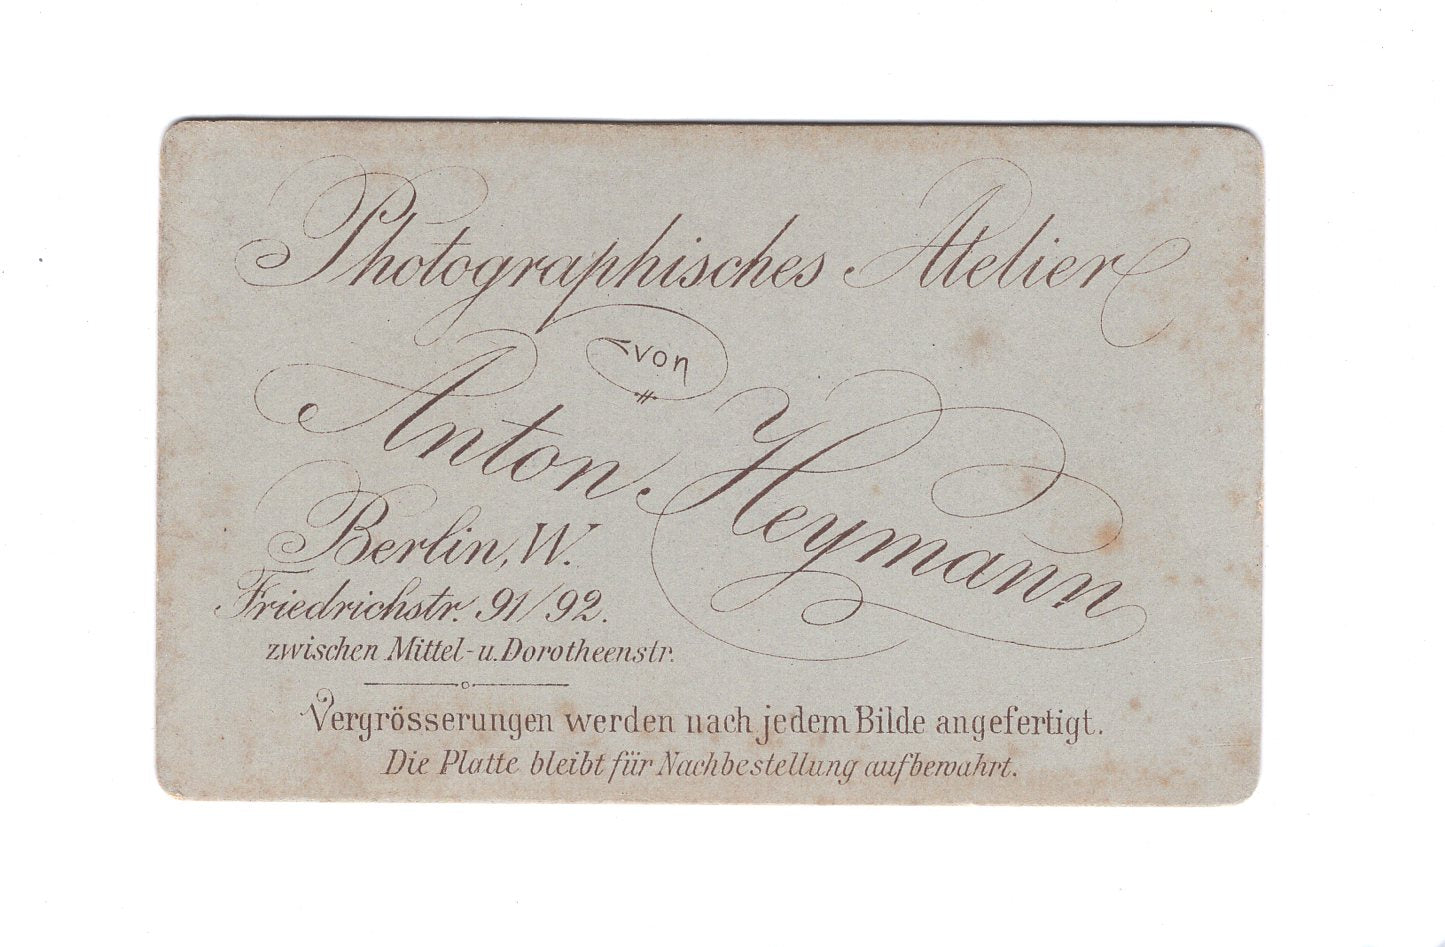 Photographisches Atelier
von
Anton Heymann
Berlin, W.
Friedrichstr. 91/92.
zwischen Mittel- u. Dorotheenstr.
Vergrösserungen werden nach jedem Bilde angefertigt.
Die Platte bleibt für Nachbestellung aufbewahrt.